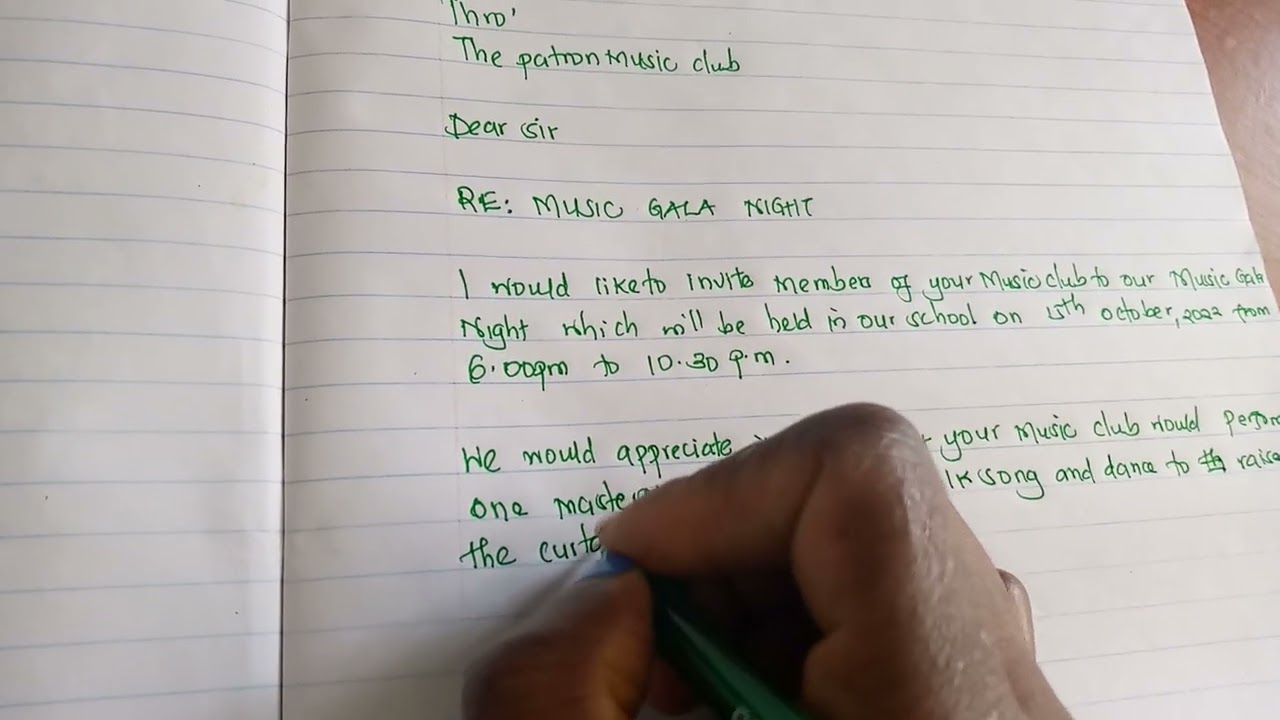 Thro'
The patron Music club
Dear Sir
RE: MUSIC GALA NIGHT
I would like to invite members of your Music club to our Music Gala
Night which will be held in our school on 15th october, 2022 from
6.00pm to 10.30 p.m.
We would appreciate your Music club would perform
one song and dance to raise
the